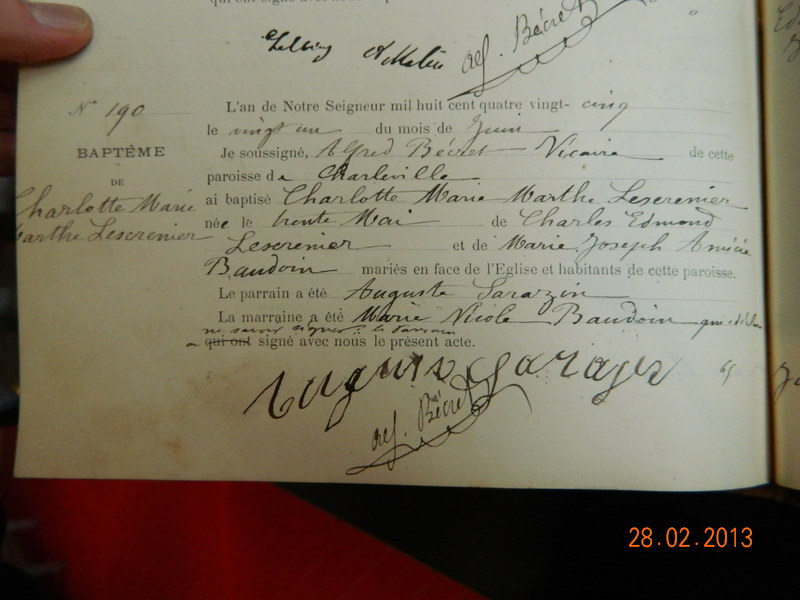 qui ont signé avec nous le présent acte.
alf. Bécret
N° 190
BAPTÊME
DE
Charlotte Marie
Marthe Lescrenier
L'an de Notre Seigneur mil huit cent quatre vingt- cinq
le vingt un du mois de Juin
Je soussigné, Alfred Bécret Vicaire de cette
paroisse de Charleville
ai baptisé Charlotte Marie Marthe Lescrenier
née le trente Mai de Charles Edmond
Lescrenier et de Marie Joseph Amécie
Baudoin mariés en face de l'Eglise et habitants de cette paroisse.
Le parrain a été Auguste Sarazin
La marraine a été Marie Nicole Baudoin qui a déclaré
ne savoir signer; le Parrain
a qui ont signé avec nous le présent acte.
alf. Bécret
28.02.2013